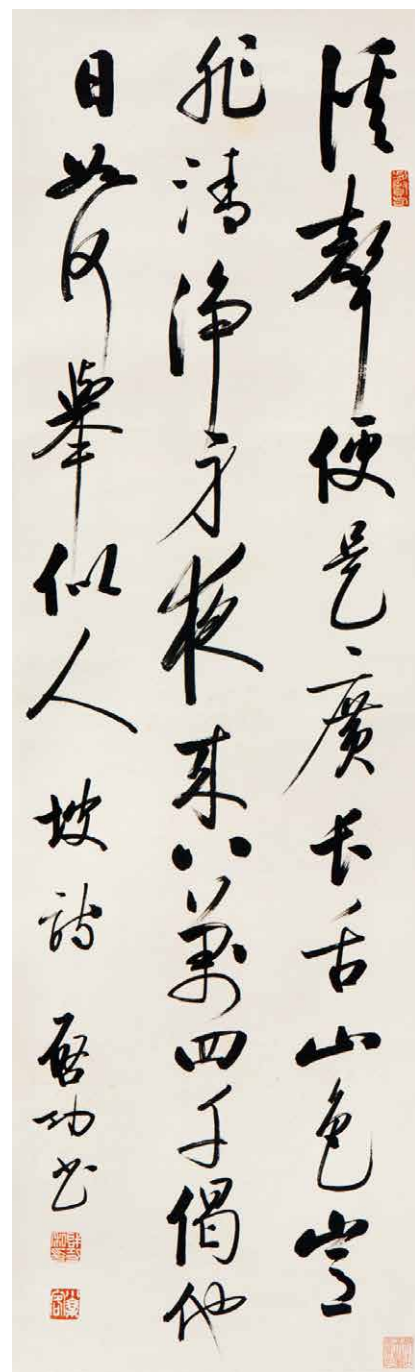 溪聲便是廣長舌山色豈
非清淨身夜来八萬四千偈他
日如何舉似人 坡詩 啓功書